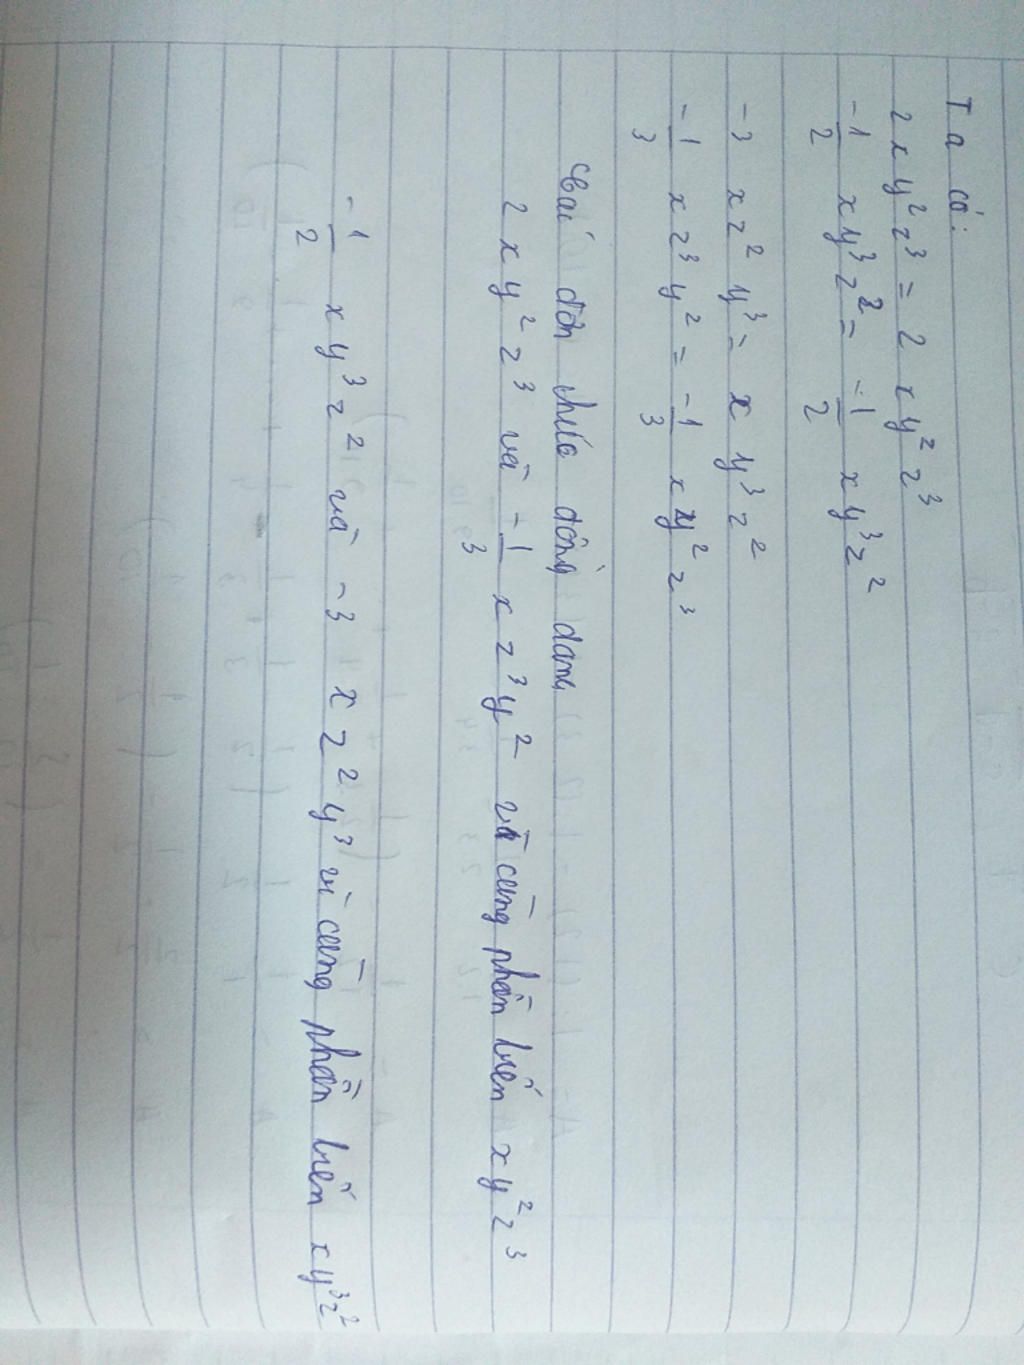 Ta có:
2xy²z³ = 2xy²z³
-1/2 xy³z² = -1/2 xy³z²
-3 xz²y³ = xy³z²
-1/3 xz³y² = -1/3 xy²z³
Các đơn thức đồng dạng
2xy²z³ và -1/3 xz³y² vì cùng phần biến xy²z³
-1/2 xy³z² và -3 xz²y³ vì cùng phần biến xy³z²